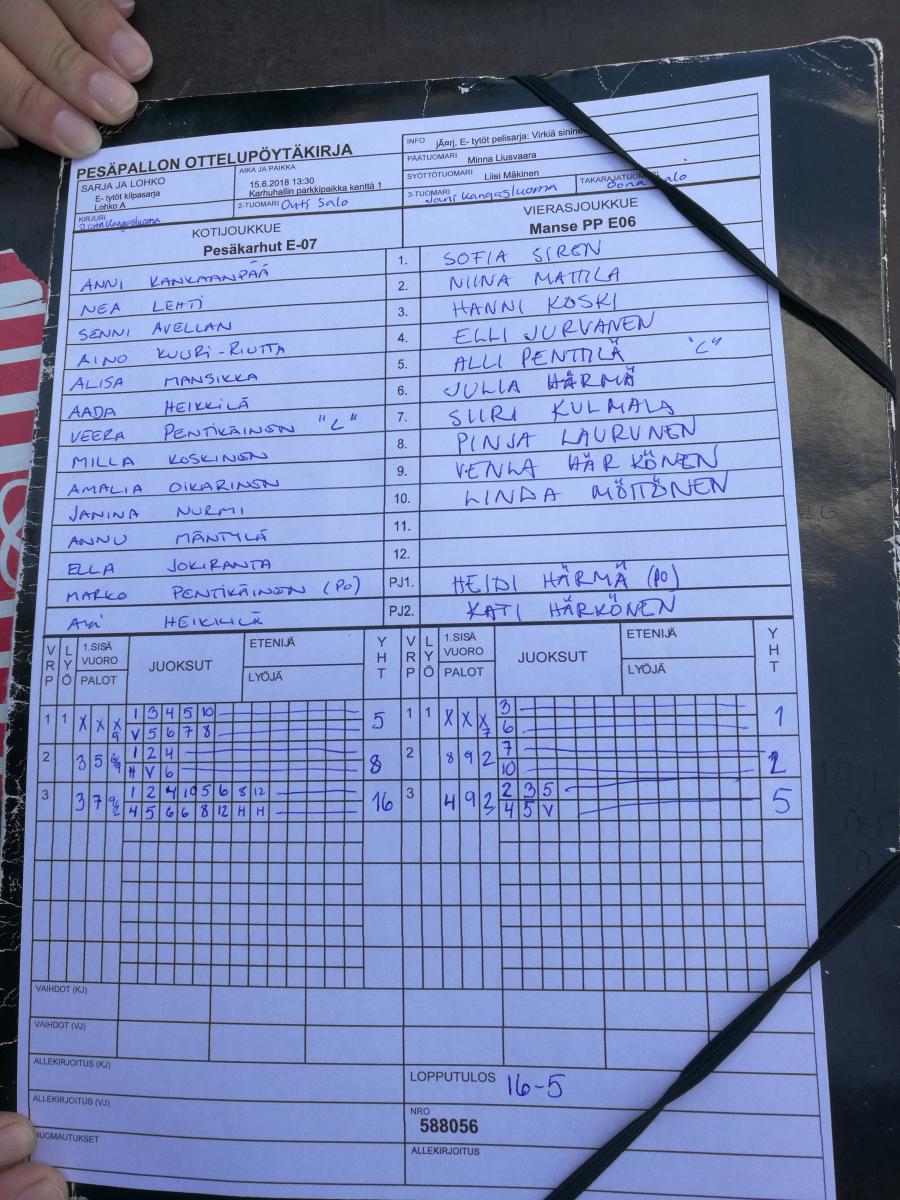 PESÄPALLON OTTELUPÖYTÄKIRJA
SARJA JA LOHKO
E- tytöt kilpasarja
Lohko A
AIKA JA PAIKKA
15.6.2018 13:30
Karhuhallin parkkipaikka kenttä 1
KIRJURI
Kangasluoma
2-TUOMARI Outi Salo
INFO jÃ¤rj. E- tytöt pelisarja: Virkiä sininen
PÄÄTUOMARI Minna Liusvaara
SYÖTTÖTUOMARI Liisi Mäkinen
3-TUOMARI Jani Kangasluoma
TAKARAJATUOMARI Oona Salo
KOTIJOUKKUE
Pesäkarhut E-07
VIERASJOUKKUE
Manse PP E06
ANNI KANKAANPÄÄ 1. SOFIA SIREN
NEA LEHTI 2. NIINA MATTILA
SENNI AVELLAN 3. HANNI KOSKI
AINO KUURI-RIUTTA 4. ELLI JURVANEN
ALISA MANSIKKA 5. ALLI PENTTILÄ "L"
AADA HEIKKILÄ 6. JULIA HÄRMÄ
VEERA PENTIKÄINEN "L" 7. SIIRI KULMALA
MILLA KOSKINEN 8. PINJA LAURUNEN
AMALIA OIKARINEN 9. VENLA HÄRKÖNEN
JANINA NURMI 10. LINDA MÖTTÖNEN
ANNU MÄNTYLÄ 11.
ELLA JOKIRANTA 12.
MARKO PENTIKÄINEN (PO) PJ1. HEIDI HÄRMÄ (PO)
HEIKKILÄ PJ2. KATI HÄRKÖNEN
VRP LYÖ 1.SISÄ VUORO PALOT JUOKSUT ETENIJÄ LYÖJÄ YHT VRP LYÖ 1.SISÄ VUORO PALOT JUOKSUT ETENIJÄ LYÖJÄ YHT
1 1 X X X 9 1 3 4 5 10 5 1 1 X X X 7 3 1
V 5 6 7 8 6
2 3 5 1 2 4 8 2 8 9 2 7 2
H V 6 10
3 3 7 9/2 1 2 4 10 5 6 8 12 16 3 4 9 2 2 3 5 5
4 5 6 6 8 12 H H 4 5 V
VAIHDOT (KJ)
VAIHDOT (VJ)
ALLEKIRJOITUS (KJ)
LOPPUTULOS 16-5
ALLEKIRJOITUS (VJ)
NRO
588056
HUOMAUTUKSET
ALLEKIRJOITUS